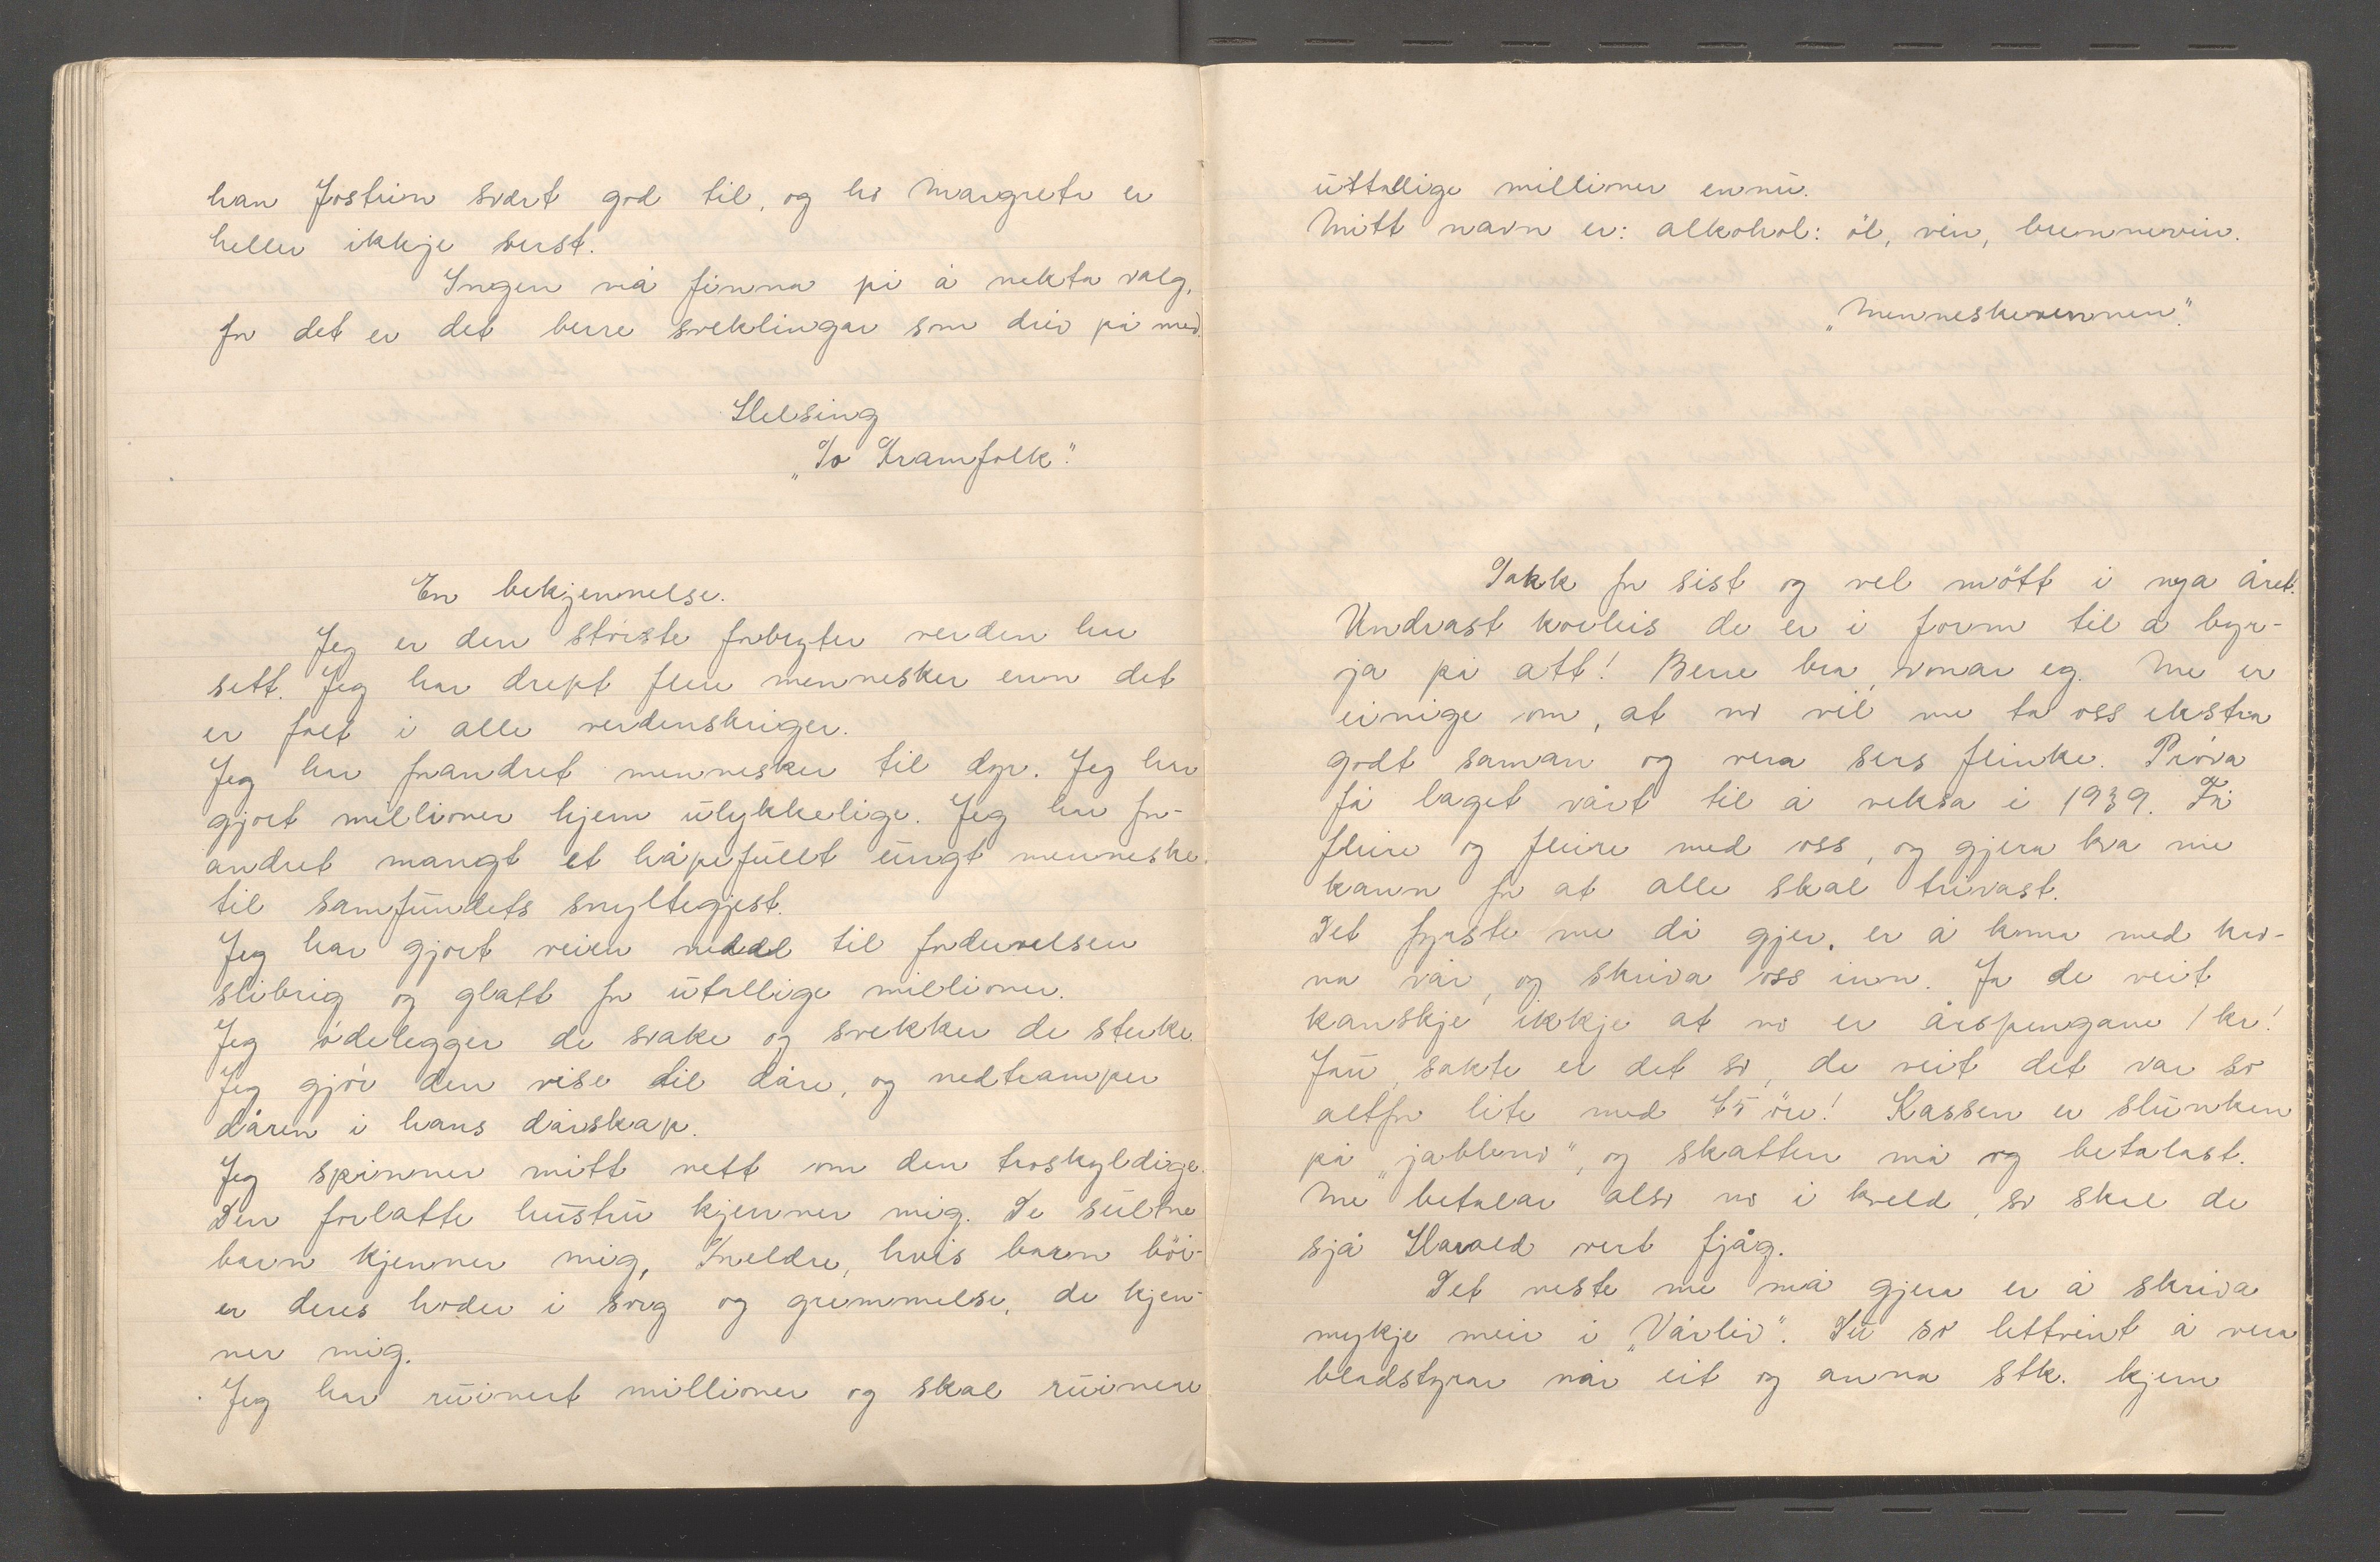 han Jostein svært god til, og ho Margrete er
heller ikkje verst.
Ingen må finna på å nekta valg,
for det er det berre sveklingar som driv på med.
Helsing
"To Framfolk".
En bekjennelse.
Jeg er den störste forbryter verden har
sett. Jeg har drept flere mennesker enn det
er falt i alle verdenskriger.
Jeg har forandret mennesker til dyr. Jeg har
gjort millioner hjem ulykkelige. Jeg har for-
andret mangt et håpefullt ungt menneske
til samfundets snyltegjest.
Jeg har gjort veien nedad til fordervelsen
slibrig og glatt for utallige millioner.
Jeg ödelegger de svake og svekker de sterke.
Jeg gjör den vise til dåre, og nedtramper
dåren i hans dårskap.
Jeg spinner mitt nett om den troskyldige.
Den forlatte hustru kjenner mig. De sultne
barn kjenner mig, Foreldre, hvis barn böi-
er deres hoder i sorg og gremmelse, de kjen-
ner mig.
Jeg har ruinert millioner og skal ruinere
utallige millioner ennu.
Mitt navn er: alkohol: öl, vin, brennevin.
"Menneskevennen".
Takk for sist og vel mött i nya året.
Undrast korleis de er i form til å byr-
ja på att! Berre bra, vonar eg. Me er
einige om, at no vil me ta oss ekstra
godt saman og vera sers flinke. Pröva
få laget vårt til å veksa i 1939. Få
fleire og fleire med oss, og gjera kva me
kann for at alle skal trivast.
Det fyrste me då gjer, er å koma med kro-
na vår, og skriva oss inn. Ja de veit
kanskje ikkje at no er årspengane 1 kr!
Jau, sakte er det so, de veit det var so
altfor lite med 75 öre! Kassen er slunken
på "jabben", og skatten må og betalast.
Me betalar also no i kveld, so skal de
sjå Harald vert fjåg.
Det neste me må gjera er å skriva
mykje meir i "Vårliv". Du so lettvint å vera
bladstyrar når eit og anna stk. kjem